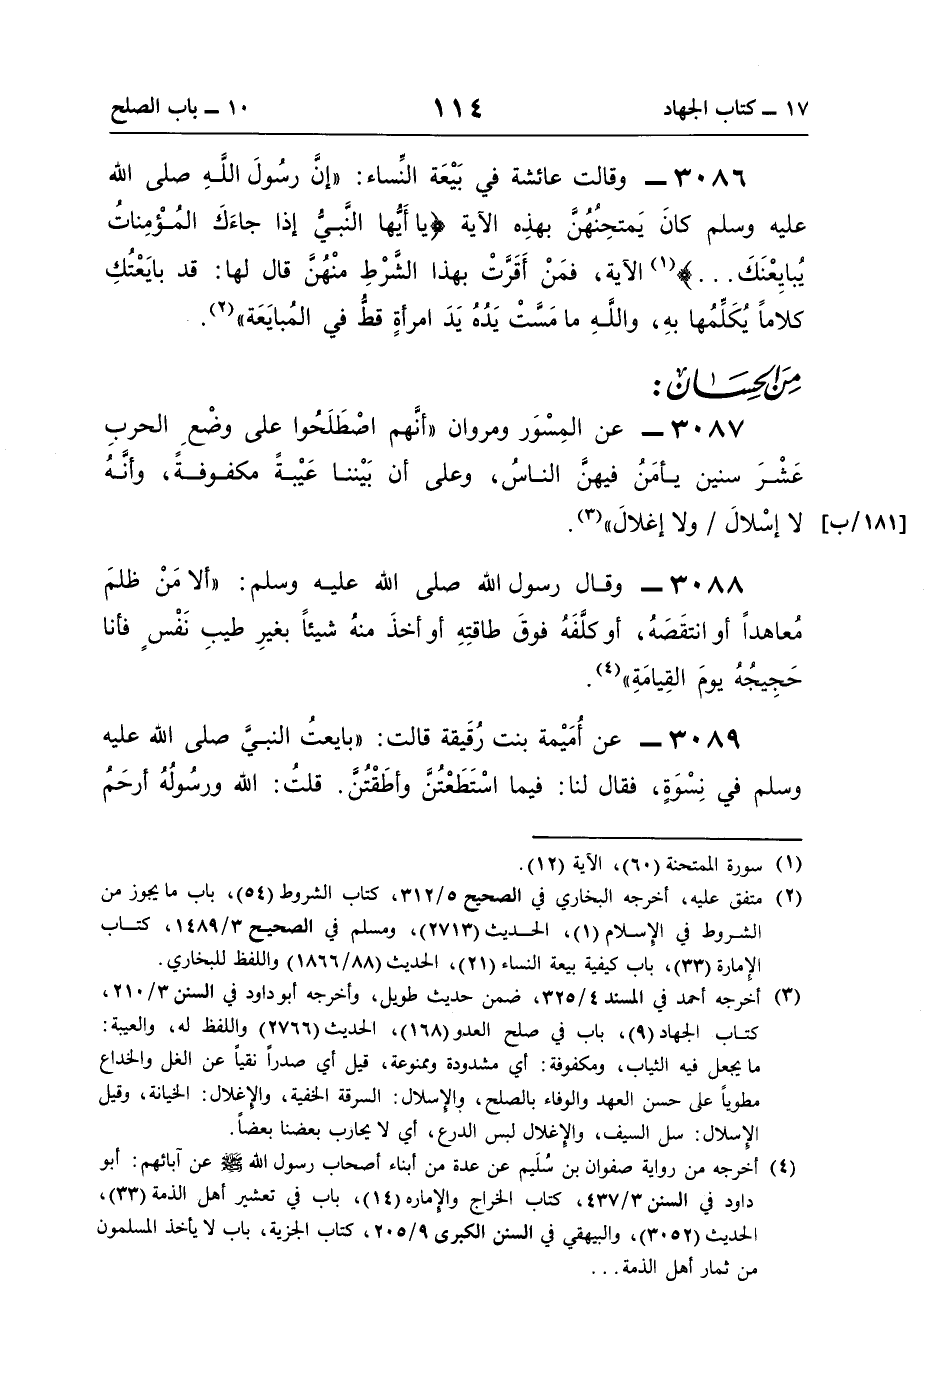 ١٧ ـ كتاب الجهاد ١١٤ ١٠ ـ باب الصلح
٣٠٨٦ ـ وقالت عائشة في بَيْعَة النِّساء: «إنَّ رسُولَ اللَّهِ صلى الله
عليه وسلم كانَ يَمتحِنُهُنَّ بهذِه الآية ﴿يا أيُّها النَّبيُّ إذا جاءَكَ المُؤْمِناتُ
يُبايِعْنَكَ...﴾(١) الآية، فمَنْ أَقَرَّتْ بهذا الشَّرْطِ مِنْهُنَّ قال لها: قد بايَعْتُكِ
كلاماً يُكَلِّمُها بهِ، واللَّهِ ما مَسَّتْ يَدُهُ يَدَ امرأةٍ قطُّ في المُبايَعَة»(٢).
مِنَ الحِسَان:
٣٠٨٧ ـ عن المِسْوَر ومروان «أنَّهم اصْطَلَحُوا على وضْعِ الحربِ
عَشْرَ سنين يأمَنُ فيهنَّ الناسُ، وعلى أن بَيْننا عَيْبةً مكفوفةً، وأنَّهُ
لا إسْلالَ / ولا إغلالَ»(٣). [١٨١/ب]
٣٠٨٨ ـ وقال رسول الله صلى الله عليه وسلم: «ألا مَنْ ظلمَ
مُعاهداً أو انتقَصَهُ، أو كلَّفَهُ فوقَ طاقتِهِ أو أخذَ منهُ شيئاً بغيرِ طيبِ نَفْسٍ فأنا
حَجِيجُهُ يومَ القِيامَةِ»(٤).
٣٠٨٩ ـ عن أُمَيْمة بنت رُقَيقة قالت: «بايعتُ النبيَّ صلى الله عليه
وسلم في نِسْوَةٍ، فقال لنا: فيما اسْتَطَعْتُنَّ وأطَقْتُنَّ. قلتُ: الله ورسُولُهُ أرحَمُ
(١) سورة الممتحنة (٦٠)، الآية (١٢).
(٢) متفق عليه، أخرجه البخاري في الصحيح ٣١٢/٥، كتاب الشروط (٥٤)، باب ما يجوز من
الشروط في الإسلام (١)، الحديث (٢٧١٣)، ومسلم في الصحيح ١٤٨٩/٣، كتاب
الإمارة (٣٣)، باب كيفية بيعة النساء (٢١)، الحديث (١٨٦٦/٨٨) واللفظ للبخاري.
(٣) أخرجه أحمد في المسند ٣٢٥/٤، ضمن حديث طويل، وأخرجه أبو داود في السنن ٢١٠/٣،
كتاب الجهاد (٩)، باب في صلح العدو (١٦٨)، الحديث (٢٧٦٦) واللفظ له، والعيبة:
ما يجعل فيه الثياب، ومكفوفة: أي مشدودة وممنوعة، قيل أي صدراً نقياً عن الغل والخداع
مطوياً على حسن العهد والوفاء بالصلح، والإسلال: السرقة الخفية، والإغلال: الخيانة، وقيل
الإسلال: سل السيف، والإغلال لبس الدرع، أي لا يحارب بعضنا بعضاً.
(٤) أخرجه من رواية صفوان بن سُلَيم عن عدة من أبناء أصحاب رسول الله ﷺ عن آبائهم: أبو
داود في السنن ٤٣٧/٣، كتاب الخراج والإماره (١٤)، باب في تعشير أهل الذمة (٣٣)،
الحديث (٣٠٥٢)، والبيهقي في السنن الكبرى ٢٠٥/٩، كتاب الجزية، باب لا يأخذ المسلمون
من ثمار أهل الذمة...